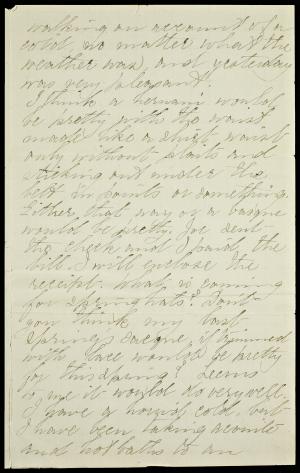 walking on account of a
cold, no matter what the
weather was, and yesterday
was very pleasant.
I think a hernani would
be pretty with the waist
made like a shirt waist
only without plaits and
sticking out under the
belt in points or something.
Either that way or a basque
would be pretty. Joe sent
the check and I paid the
bill. I will enclose the
receipt. What is coming
for spring hats? Don't
you think my last
spring sacque, if trimmed
with lace would be pretty
for this spring? Seems
to me it would do very well.
I have a horrid cold, but
I have been taking aconite
and hot baths to an